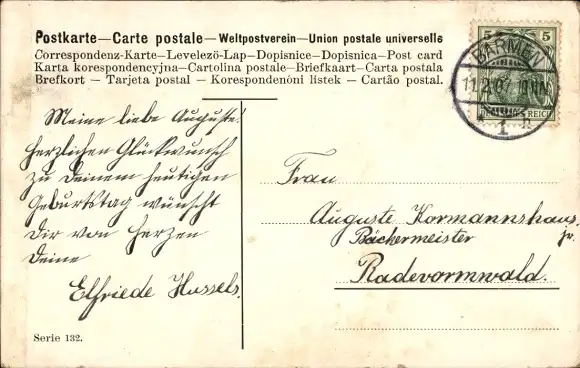 Postkarte—Carte postale—Weltpostverein—Union postale universelle
Correspondenz-Karte—Levelezö-Lap—Dopisnice—Dopisnica—Post card
Karta korespondencyjna—Cartolina postale—Briefkaart—Carta postala
Brefkort — Tarjeta postal — Korespondenóni listek — Cartão postal.
5 5
BARMEN
11.2.07
1 h
REICH
Meine liebe Auguste.
Herzlichen Glückwunsch
zu Deinem heutigen
Geburtstag wünscht
Dir von Herzen
Deine
Elfriede Hussels.
Frau
Auguste Kormannshaus,
Bäckermeister jr.
Radevormwald.
Serie 132.